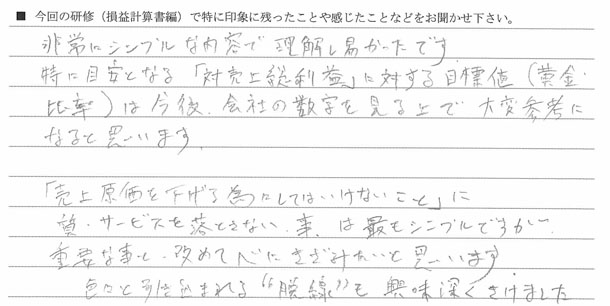 ■ 今回の研修（損益計算書編）で特に印象に残ったことや感じたことなどをお聞かせ下さい。
非常にシンプルな内容で理解し易かったです
特に目安となる「対売上総利益」に対する目標値（黄金
比率）は今後、会社の数字を見る上で大変参考に
なると思います。
「売上原価を下げる為にしてはいけないこと」に
質・サービスを落とさない、事、は最もシンプルですが
重要な事と、改めて心にきざみたいと思います
色々と引き込まれる“脱線”も興味深くきけました